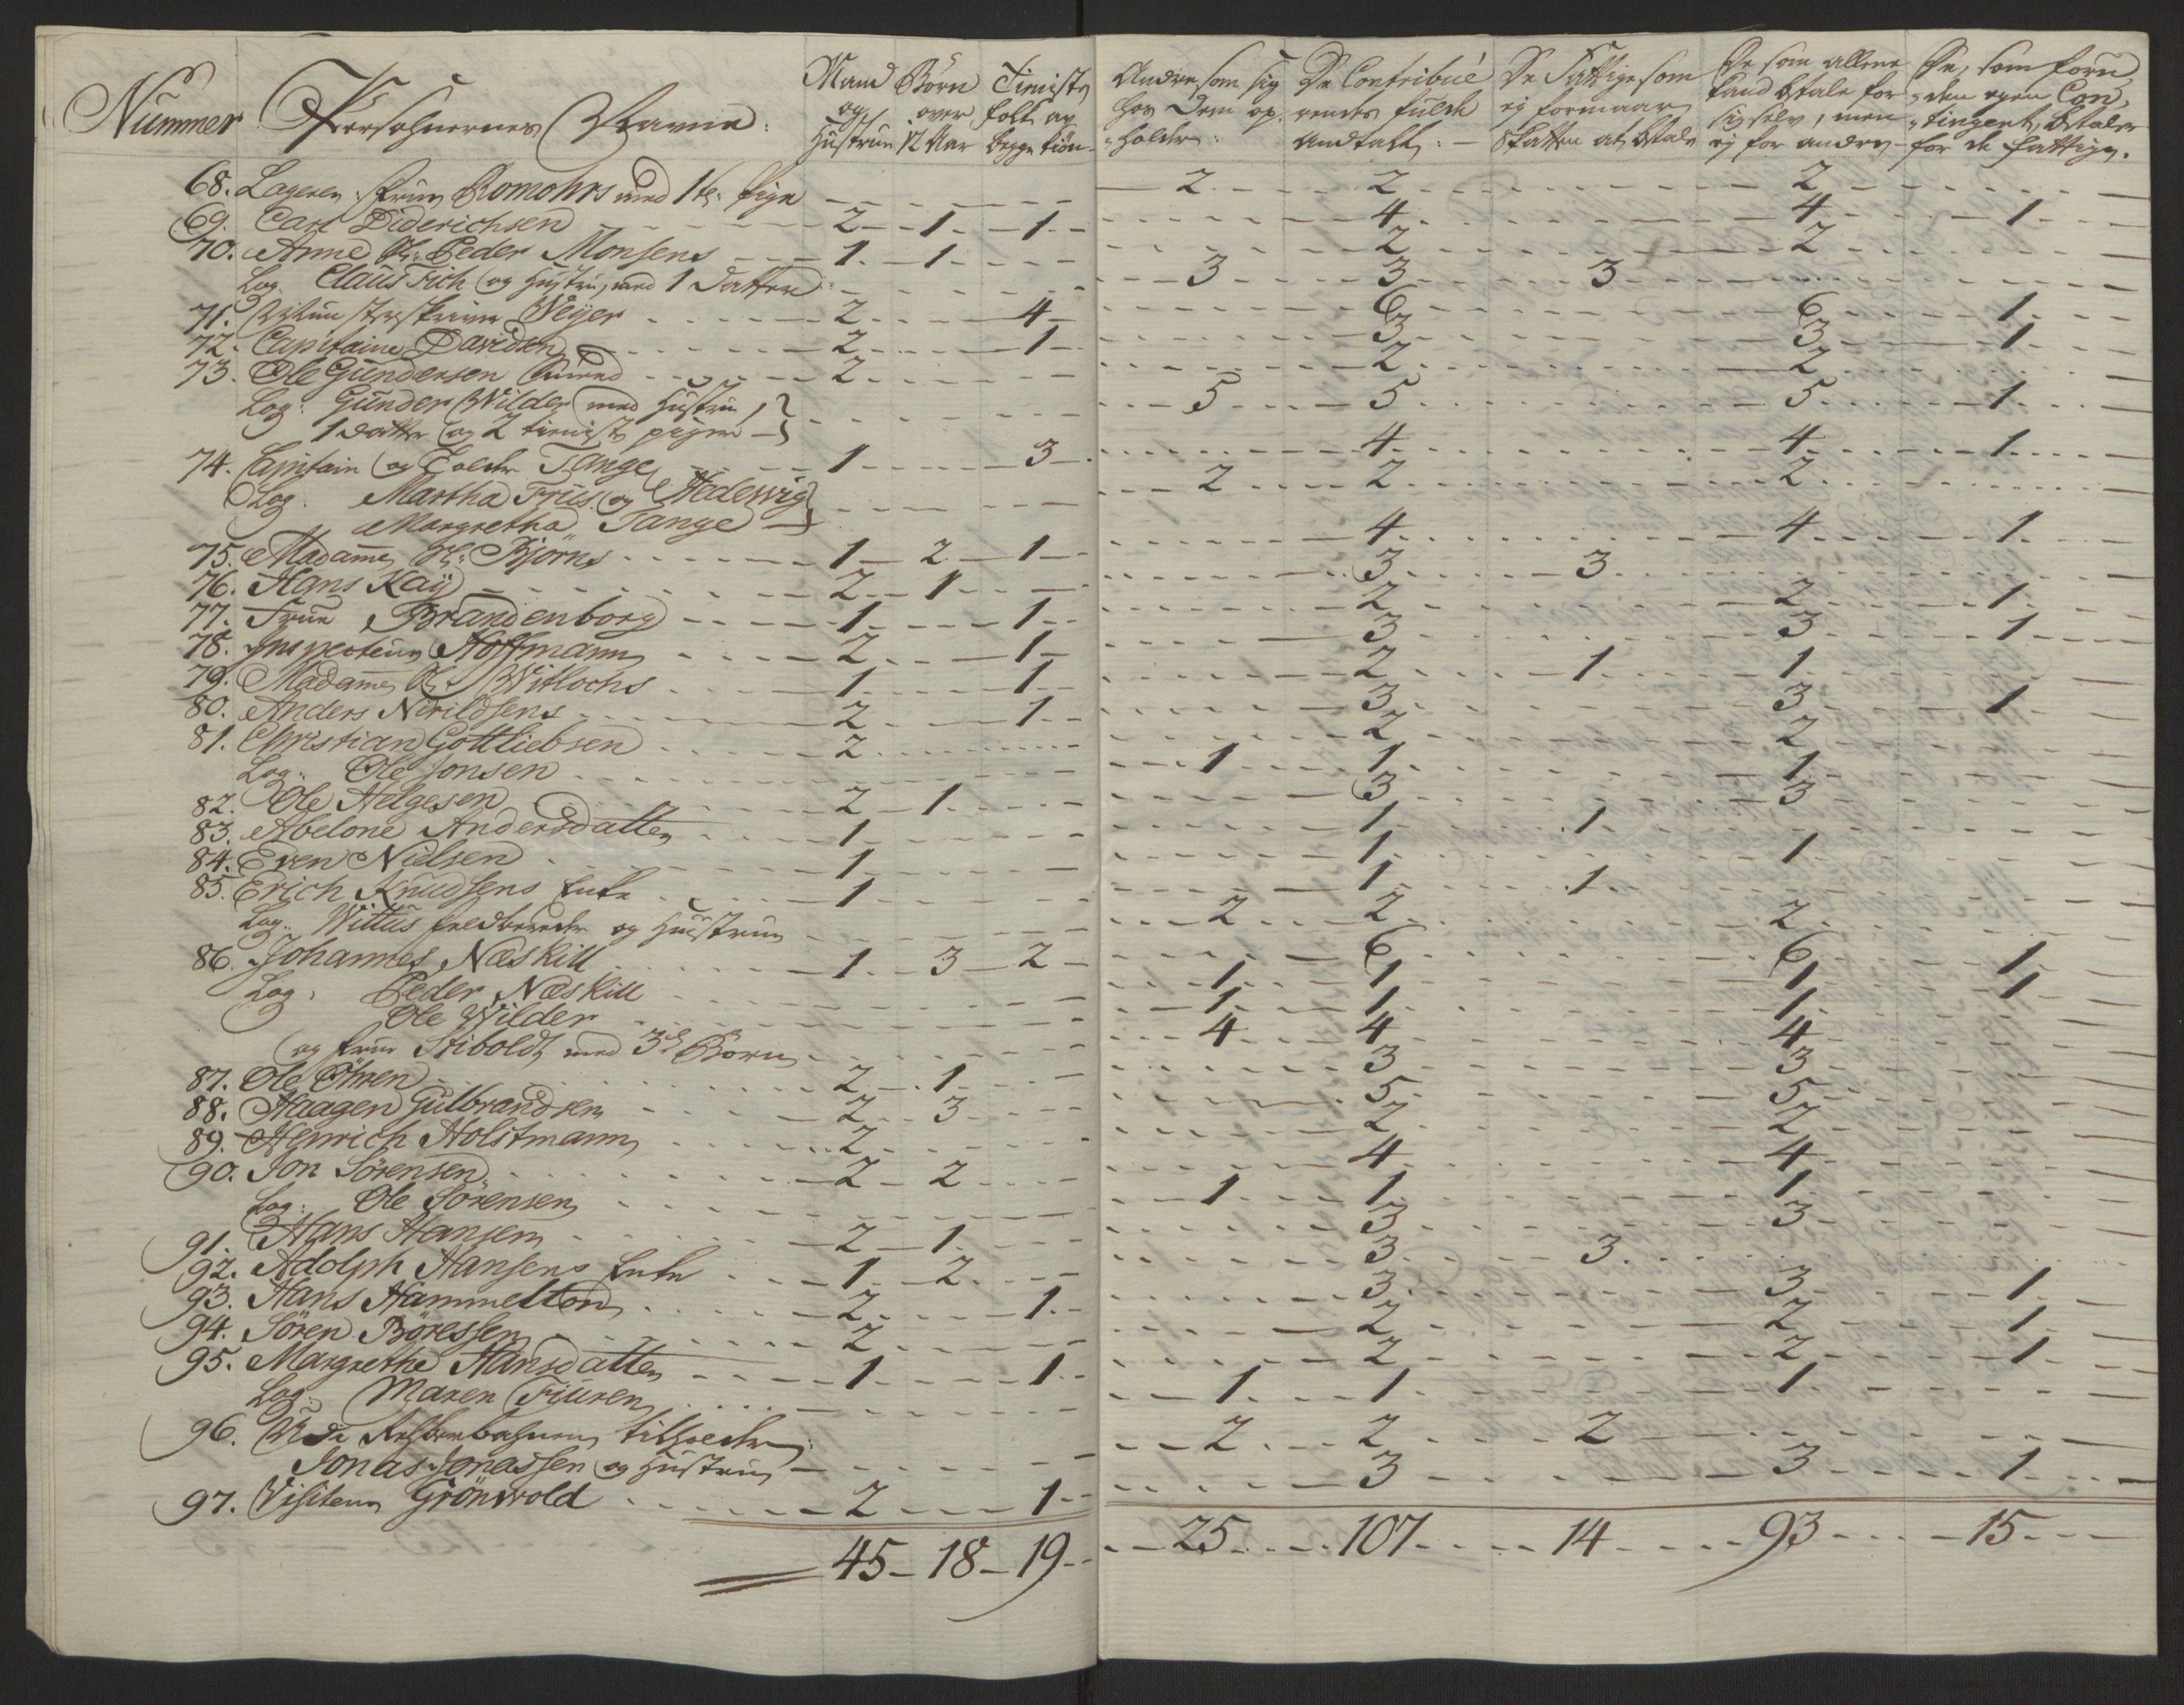 Nummer Persohnernes Navne: Mand og Hustrue Börn over 12 Aar Tieniste folk av begge kiön Andre som sig hos Dem op-holder: De Contribuerendes fulde Andtall: De Fattige som ej formaar Skatten at betale De som allene kand betale for sig selv, men ej for andre De, som foru-den egen Con-tingent, betaler for de fattige.
68. Logerer: frue Romohrs med 1 pige 2 2 2
69. Carl Diderichsen 2 1 1 4 4 1
70. Anne Peder Monsens 1 1 2 2
Log. Claus Fich og Hustrue med 1 Datter 3 3 3
71. Weyer 2 4 6 6 1
72. Capitaine Davidsen 2 1 3 3 1
73. Ole Gundersen 2 2 2
Log: Gunder Wilder med Hustrue, 5 5 5 1
1 datter og 2 tieniste piger
74. Capitain og Tolder Tange 1 3 4 4 1
Log. Martha Friis og Hedewig 2 2 2
Margretha Tange
75. Madame Sl: Björns 1 2 1 4 4 1
76. Hans Kaÿ 2 1 3 3
77. Frue Brandenborg 1 1 2 2 1
78. Inspecteur Hoffmann 2 1 3 3 1
79. Madame Witlochs 1 1 2 1 1
80. Anders Nirildsens 2 1 3 3 1
81. Christian Gottliebsen 2 2 2
Log: Ole Jonsen 1 1 1
82. Ole Helgesen 2 1 3 3
83. Abelone Andersdatter 1 1 1
84. Even Nielsen 1 1 1
85. Erich Knudsens Enke 1 1 1
Log: Wittus feldbereder og Huustrue 2 2 2
86. Johannes Næskill 1 3 2 6 6 1
Log. Peder Næskill 1 1 1 1
Ole Wilder 1 1 1
og frue Stibolds med 3de Börn 4 4 4
87. Ole Ölsen 2 1 3 3
88. Haagen Gulbrandsen 2 3 5 5
89. Henrich Holstmann 2 2 2
90. Jon Sörensen 2 2 4 4
Log: Ole Sörensen 1 1 1
91. Hans Hansen 2 1 3 3
92. Adolph Hansens Enke 1 2 3 3
93. Hans Hammelton 2 1 3 3 1
94. Sören Böressen 2 2 2 1
95. Margrethe Hansdatter 1 1 2 2 1
Log: Maren Fiuren 1 1 1
96. Ved Reberbahnen tilholder: 2 2 2
Jonas Jonassen og Hustrue
97. Visiteur Grönwold 2 1 3 3 1
45 18 19 25 107 14 93 15